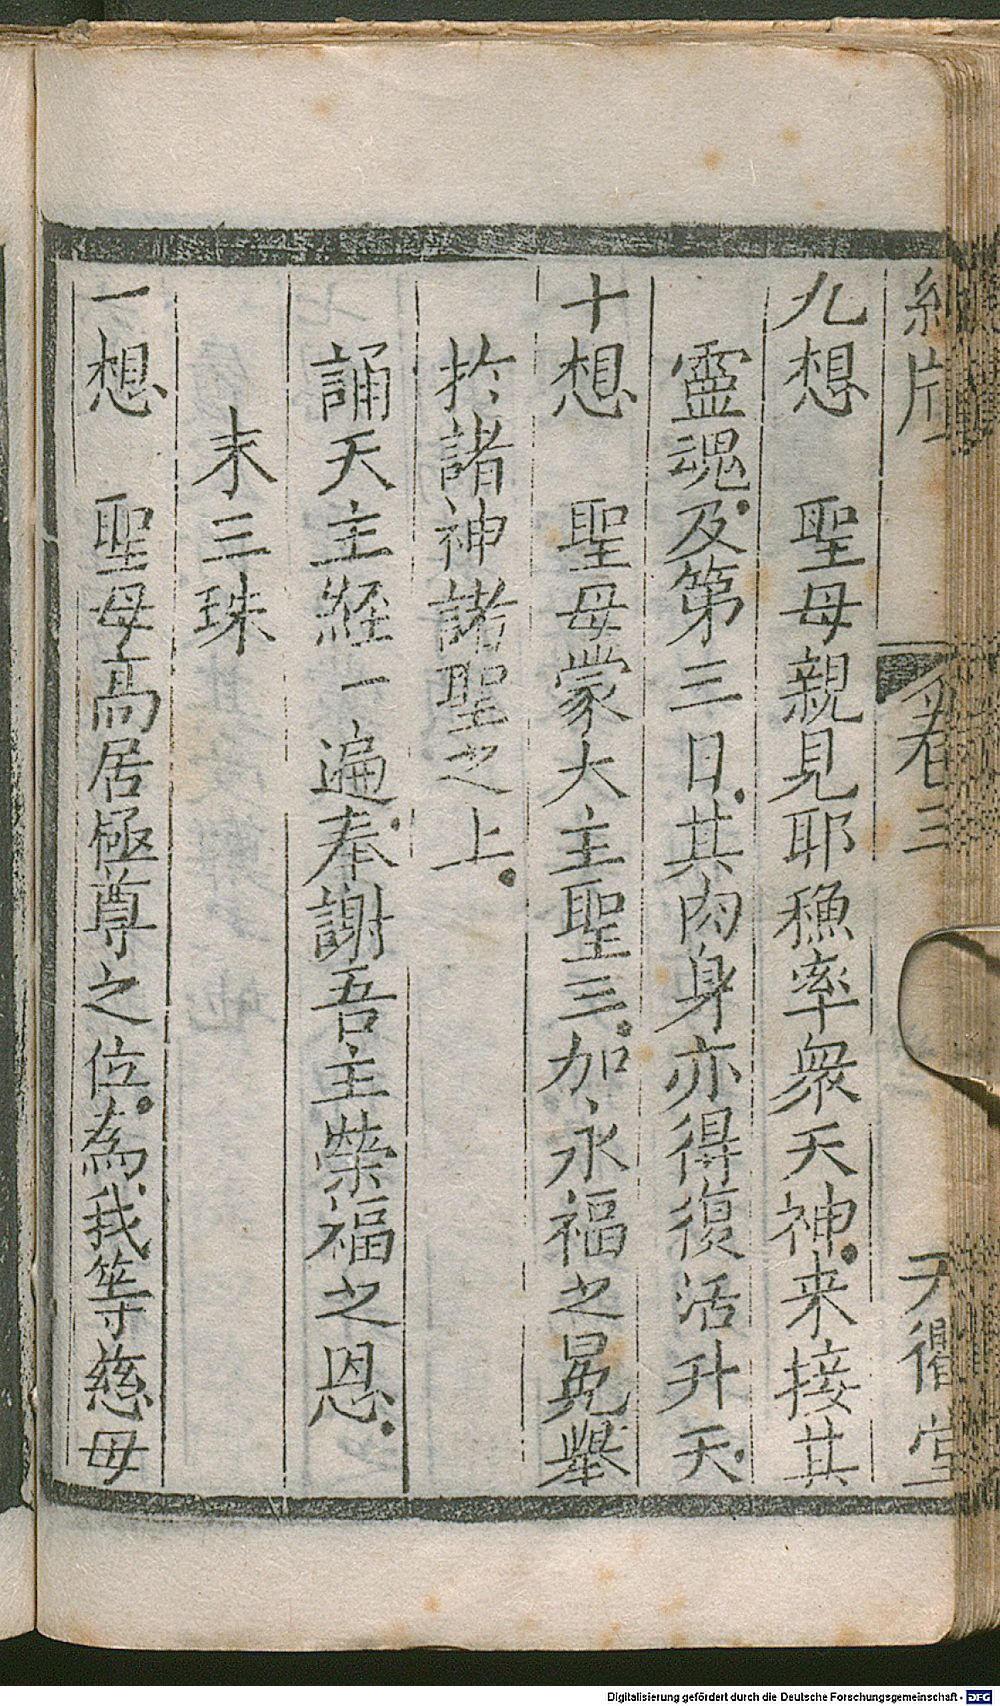 卷三
九想 聖母親見耶穌率衆天神。来接其
靈魂。及第三日。其肉身亦得復活升天。
十想 聖母蒙大主聖三。加永福之冕舉
扵諸神諸聖之上。
誦天主經一遍。奉謝吾主榮福之恩。
末三珠
一想 聖母高居極尊之位。為我等慈母
Digitalisierung gefördert durch die Deutsche Forschungsgemeinschaft - DFG